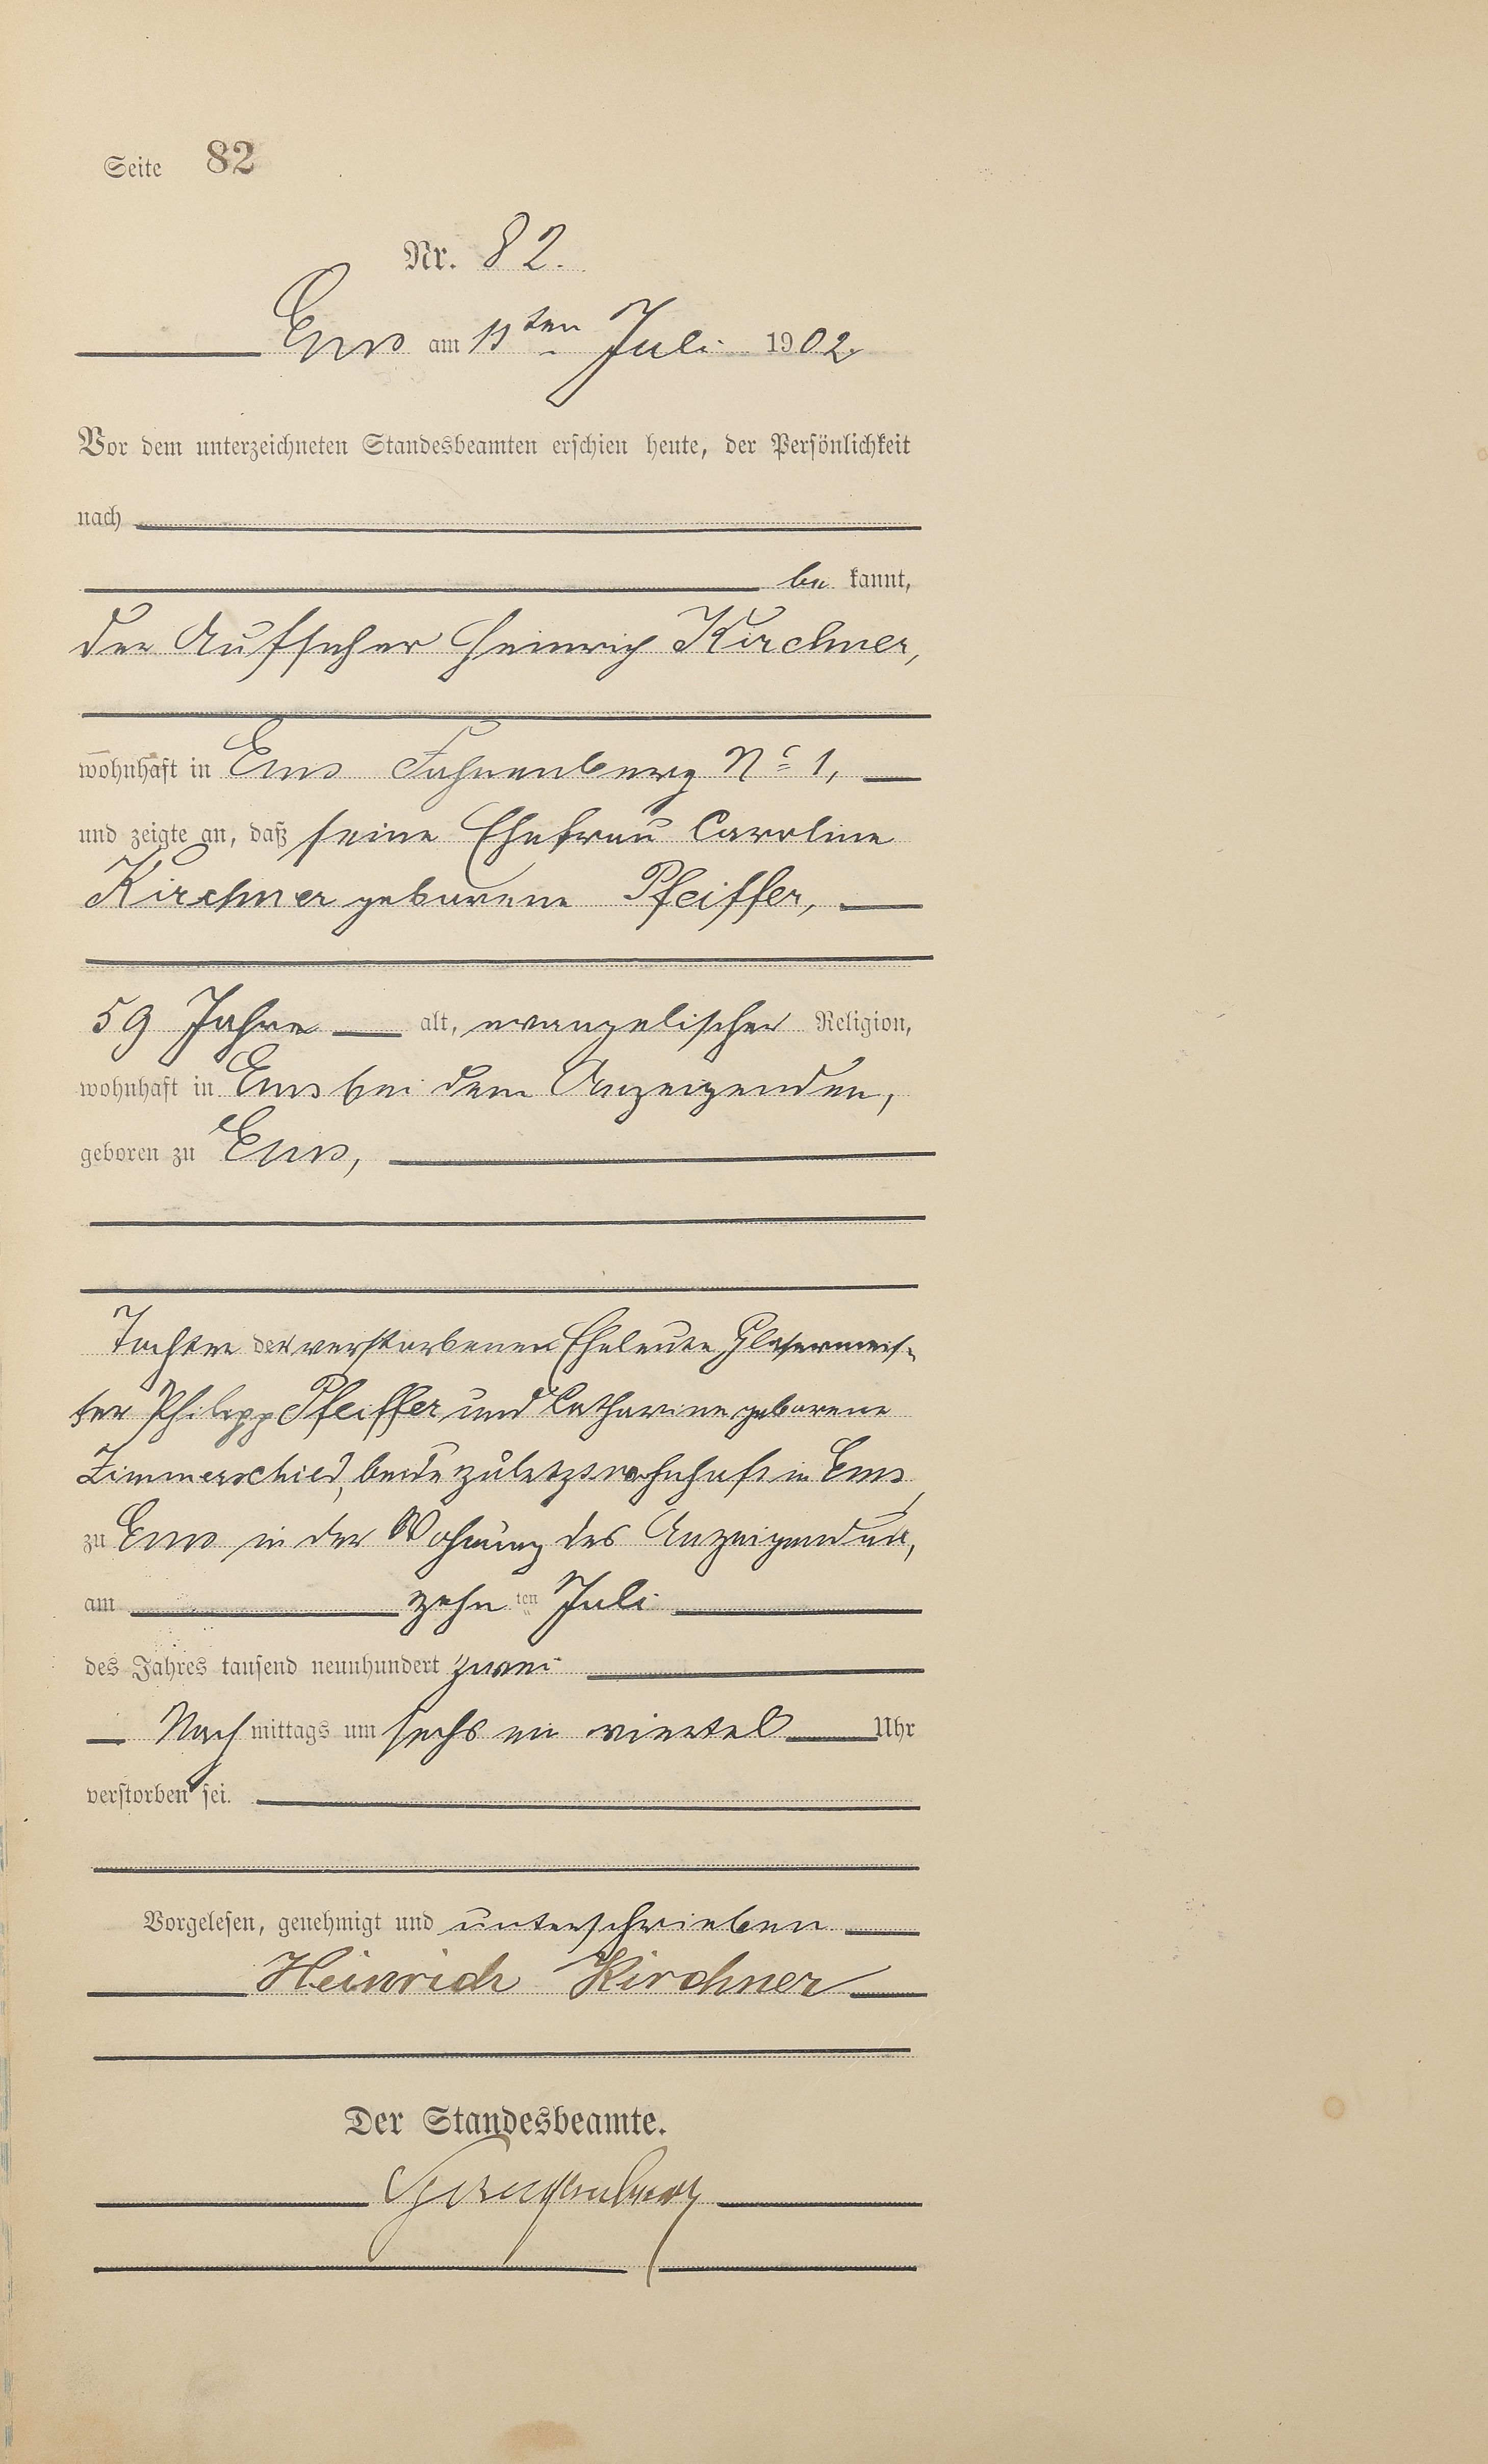 Seite 82
Nr. 82.
Ems am 11ten Juli 1902.
Vor dem unterzeichneten Standesbeamten erschien heute, der Persönlichkeit
nach
be kannt,
der Aufseher Heinrich Kirchner,
wohnhaft in Ems Fahnenberg No 1,
und zeigte an, daß seine Ehefrau Caroline
Kirchner geborene Pfeiffer,
59 Jahre alt, evangelischer Religion,
wohnhaft in Ems bei dem Anzeigenden,
geboren zu Ems,
Tochter der verstorbenen Eheleute Glasermeis-
ter Philipp Pfeiffer und Catharine geborene
Zimmerschied, beide zuletzt wohnhaft in Ems,
zu Ems in der Wohnung des Anzeigenden,
am zehn ten Juli
des Jahres tausend neunhundert zwei
Nach mittags um sechs ein viertel Uhr
verstorben sei.
Vorgelesen, genehmigt und unterschrieben
Heinrich Kirchner
Der Standesbeamte.